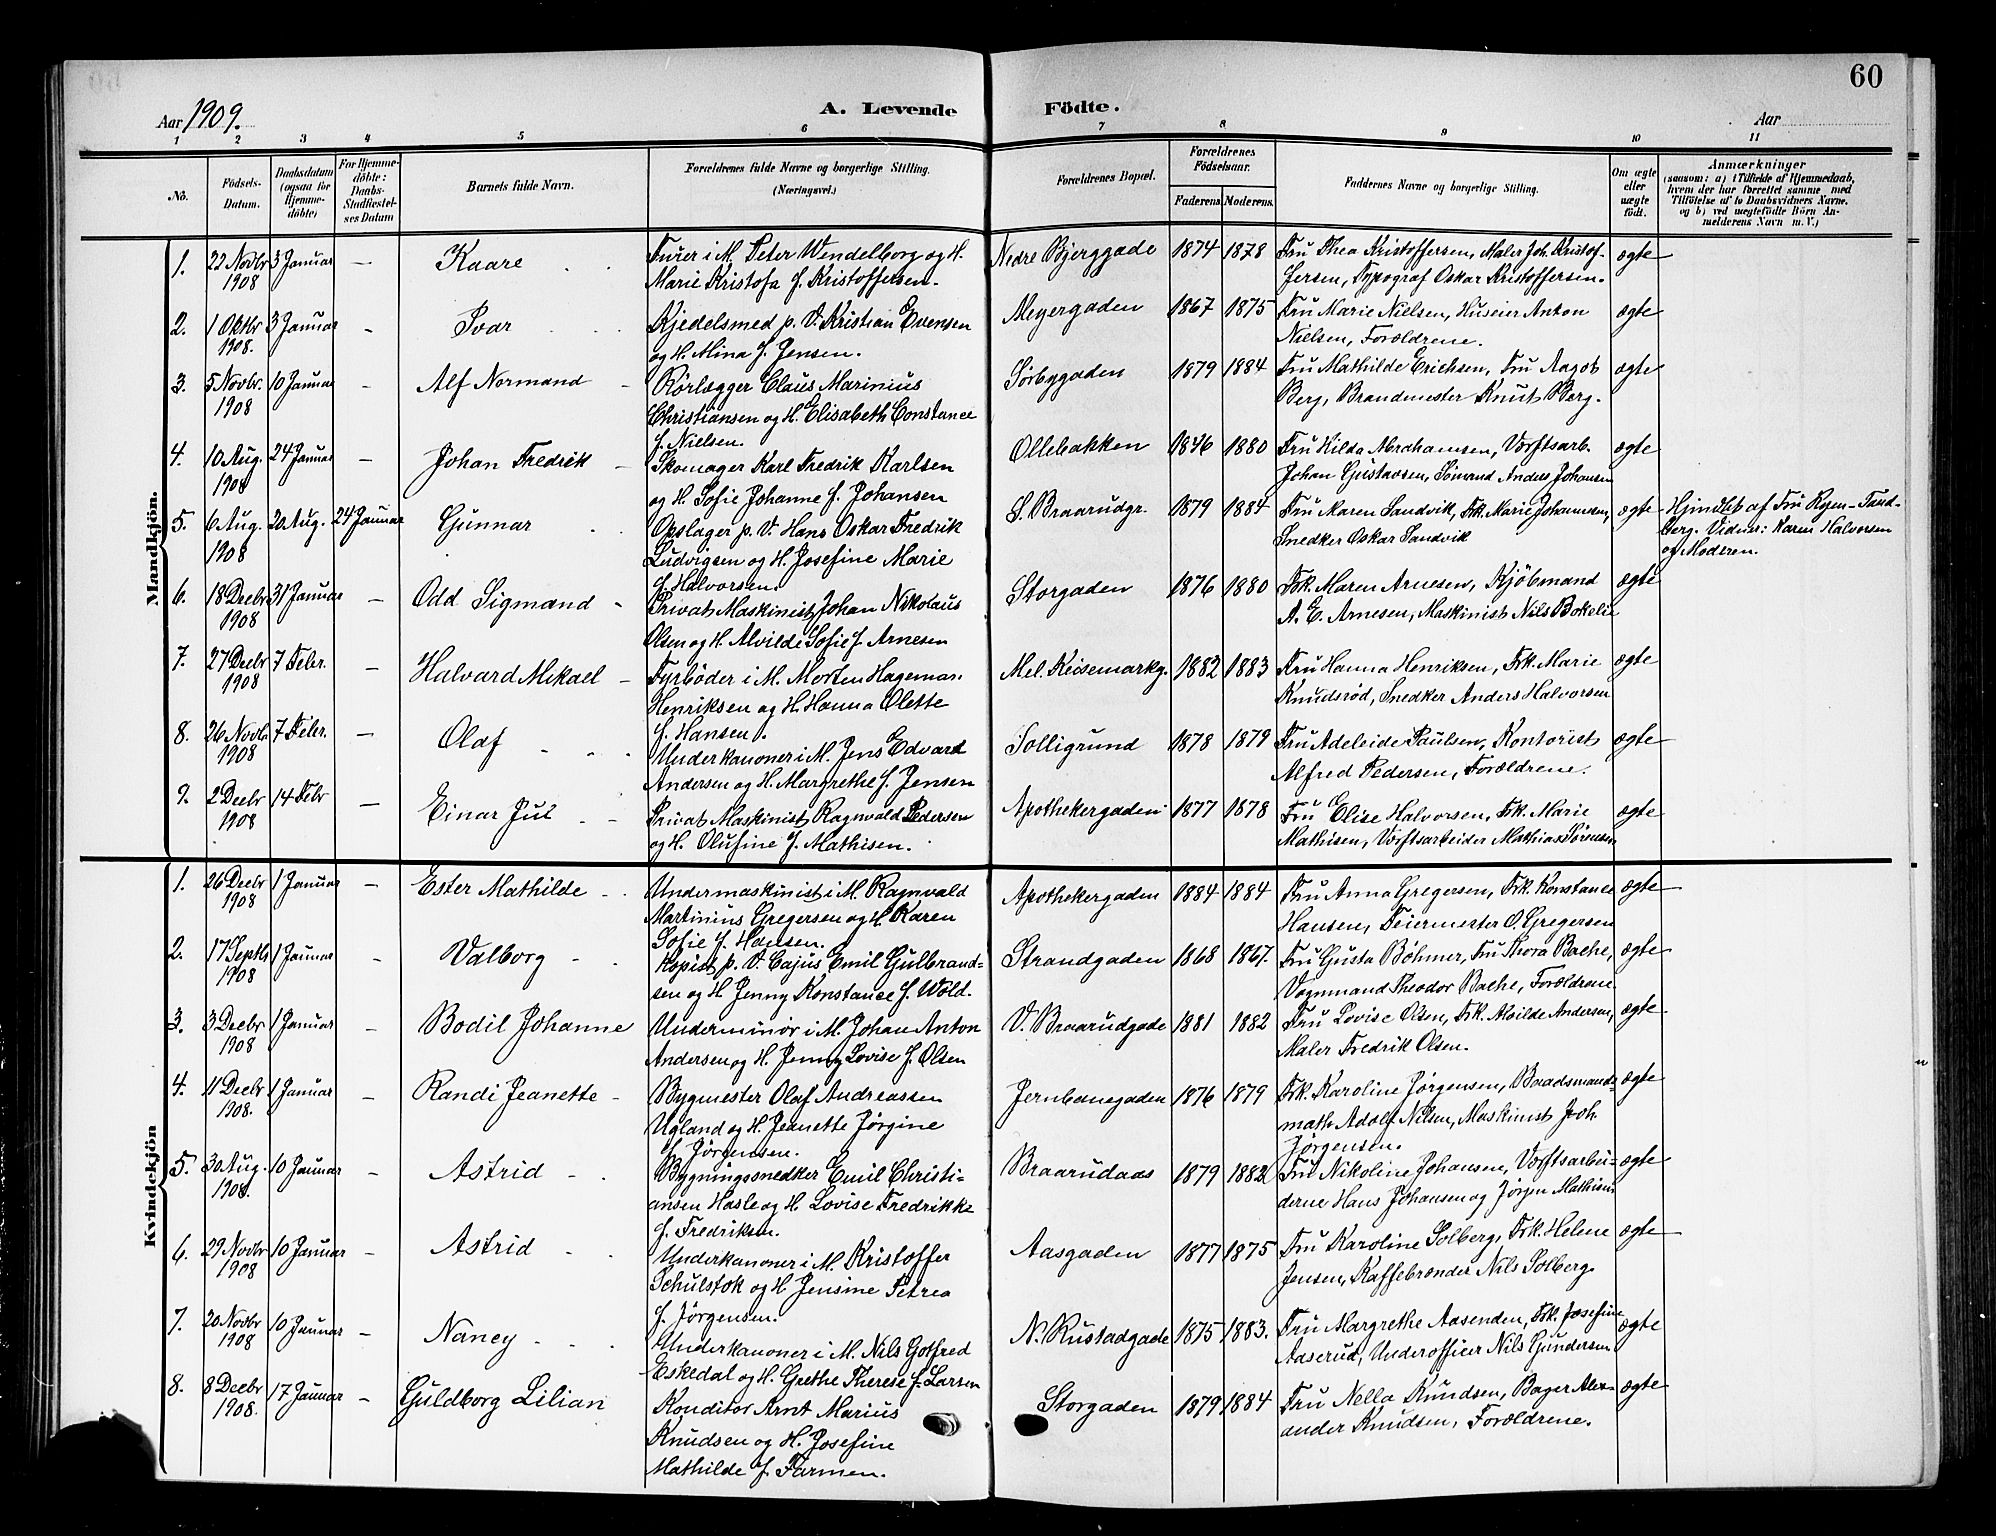 60
Aar 1909.
A. Levende Födte.
Aar
1 2 3 4 5 6 7 8 9 10 11
No.
Födsels-Datum.
Daabsdatum (ogsaa for Hjemme-döbte)
For Hjemme-döbte: Daabs-Stadfæstel-ses Datum
Barnets fulde Navn.
Forældrenes fulde Navne og borgerlige Stilling. (Næringsvei.)
Forældrenes Bopæl.
Forældrenes Födselsaar.
Faderens. Moderens.
Faddernes Navne og borgerlige Stilling.
Om ægte eller uægte födt.
Anmærkninger
(saasom: a) i Tilfælde af Hjemmedaab, hvem der har forrettet samme med Tilföielse af to Daabsvidners Navne. og b) ved uægtefödte Börn An-melderens Navn m. V.)
Mandkjön.
1. 22 Novbr 1908 3 Januar — Kaare
Furer i M. Peter Wendelborg og H.
Marie Kristofa f. Kristoffersen.
Nedre Bjerggade 1874 1878
Fru Thea Kristoffersen, Maler Joh. Kristof-
fersen, Typograf Oskar Kristoffersen.
ægte
2. 1 Oktbr 1908. 3 Januar - Ivar
Kjedelsmed p. V. Kristian Evensen
og H. Mina f. Jensen.
Meyergaden 1867 1875
Fru Marie Nielsen, Huseier Anton
Nielsen, Forældrene.
ægte
3. 5 Novbr. 1908 10 Januar - Alf Normand
Rørlægger Claus Marinius
Christiansen og H. Elisabeth Constance
f. Nielsen.
Sørbygaden 1879 1884
Fru Mathilde Erichsen, Fru Aagot
Berg, Brandmester Knut Berg.
ægte
4. 10 Aug. 1908 24 Januar — Johan Fredrik
Skomager Karl Fredrik Karlsen
og H. Sofie Johanne f. Johansen
Ollebakken 1880
Fru Hilda Abrahamsen, Værftsarb.
Johan Gustavsen, Sømand Anders Johansen
ægte
5. 6 Aug. 1908 20 Aug. 24 Januar Gunnar
Opslager p. V. Hans Oskar Fredrik
Ludvigsen og H. Josefine Marie
f. Halvorsen.
S. Braarudgr. 1879 1884
Fru Maren Sandvik, Frk. Marie Johannesen,
Snedker Oskar Sandvik
ægte
Hjmdbt af Fru Ryen-Tand-
berg. Vidner: Karen Halvorsen
og Moderen.
6. 18 Decbr 1908 31 Januar — Odd Sigmand
Privat Maskinist Johan Nikolaus
Olsen og H. Alvilde Sofie f. Arnesen
Storgaden 1876 1880
Frk. Maren Arnesen, Kjøbmand
A. E. Arnesen, Maskinist Nils Bokelie
ægte
7. 27 Decbr 1908 7 Febr. — Halvard Mikael
Fyrbøder i M. Morten Hagemar.
Henriksen og H. Hanna Olette
f. Hansen.
Mel. Keisemarkg. 1882 1883
Fru Hanna Henriksen, Frk. Marie
Knudsrød, Snedker Anders Halvorsen
ægte
8. 26 Novbr. 1908 7 Febr. — Olaf
Underkanoner i M. Jens Edvard
Andersen og H. Margrethe f. Jensen
Solligrund 1878 1879
Fru Adeleide Paulsen, Kontorist
Alfred Pedersen, Forældrene.
ægte
9. 2 Decbr 1908 14 Febr — Einar Jul
Privat Maskinist Ragnvald Pedersen
og H. Olufine f. Mathisen.
Apothekergaden 1877 1878
Fru Elise Halvorsen, Frk. Marie
Mathisen, Værftsarbeider Mathias Sørensen
ægte
Kvindekjön
1. 26 Decbr 1908 1 Januar — Ester Mathilde
Undermaskinist i M. Ragnvald
Martinius Gregersen og H. Karen
Sofie f. Hansen.
Apothekergaden 1884 1884
Fru Anna Gregersen, Frk. Konstance
Hansen, Feiermester O. Gregersen
ægte
2. 17 Septbr 1908 1 Januar - Valborg
Kopist p. V. Cajus Emil Gulbrand-
sen og H. Jenny Konstance f. Wold.
Strandgaden 1868 1867.
Fru Gusta Böhmer, Fru Thora Bache,
Vognmand Theodor Bache, Forældrene.
ægte
3. 3 Decbr 1908 1 Januar - Bodil Johanne
Underminör i M. Johan Anton
Andersen og H. Jenny Lovise f. Olsen
V. Braarudgade 1881 1882
Fru Lovise Olsen, Frk. Alvilde Andersen,
Maler Fredrik Olsen.
ægte
4. 11 Decbr 1908. 1 Januar - Randi Jeanette
Bygmester Olaf Andreassen
Ugland og H. Jeanette Jørgine
f. Jørgensen.
Jernbanegaden 1876 1879
Frk. Karoline Jørgensen, Baadsmands-
math Adolf Nilsen, Maskinist Joh.
Jørgensen.
ægte
5. 30 Aug. 1908. 10 Januar - Astrid
Bygningssnedker Emil Christi-
ansen Hasle og H. Lovise Fredrikke
f. Fredriksen.
Braarudaas 1879 1882
Fru Nikoline Johansen, Værftsarbei-
derne Hans Johansen og Jørgen Mathisen
ægte
6. 29 Novbr 1908 10 Januar - Astrid
Underkanoner i M. Kristoffer
Schulstok og H. Jensine Petrea
f. Jørgensen.
Aasgaden 1877 1875
Fru Karoline Solberg, Frk. Helene
Jensen, Kaffebrænder Nils Solberg
ægte
7. 20 Novbr 1908 10 Januar — Nancy
Underkanoner i M. Nils Gotfred
Eskedal og H. Grethe Therese f. Larsen
N. Rustadgade 1875 1883.
Fru Margrethe Aasenden, Frk. Josefine
Aaserud, Underofficer Nils Gundersen
ægte
8. 8 Decbr 1908. 17 Januar - Guldborg Lilian
Konditor Arnt Marius
Knudsen og H. Josefine
Mathilde f. Farmen.
Storgaden 1879 1884
Fru Nella Knudsen, Bager Alex-
ander Knudsen, Forældrene.
ægte